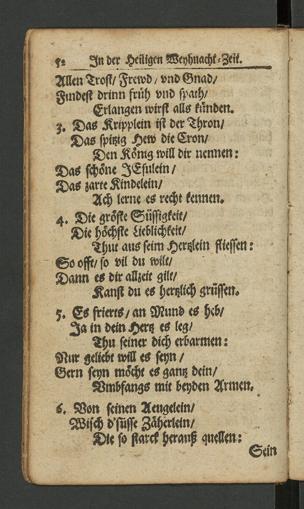 52 In der Heiligen Weyhnacht-Zeit.
Allen Trost/ Frewd/ vnd Gnad/
Findest drinn früh vnd spath/
Erlangen wirst alls künden.
3. Das Kripplein ist der Thron/
Das spitzig Hew die Cron/
Den König will dir nennen:
Das schöne JEsulein/
Das zarte Kindelein/
Ach lerne es recht kennen.
4. Die gröste Süssigkeit/
Die höchste Lieblichkeit/
Thut aus seim Hertzlein fliessen:
So offt/ so vil du wilt/
Dann es dir allzeit gilt/
Kanst du es hertzlich grüssen.
5. Es frierts/ an Mund es heb/
Ja in dein Hertz es leg/
Thu seiner dich erbarmen:
Nur geliebt will es seyn/
Gern seyn möcht es gantz dein/
Vmbfangs mit beyden Armen.
6. Von seinen Aengelein/
Wisch d'süsse Zäherlein/
Die so starck herauß quellen:
Sein